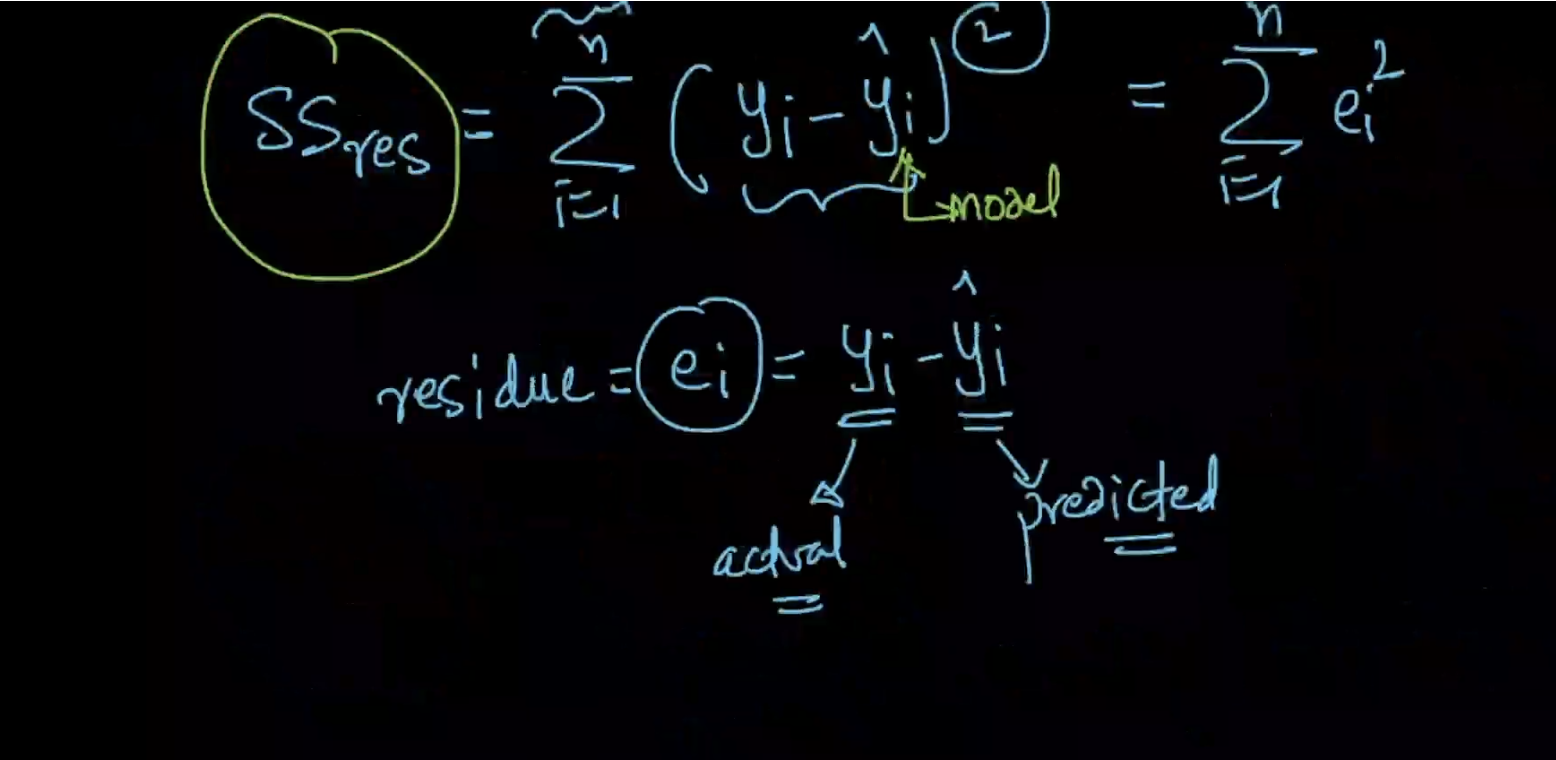 SSres = n∑i=1 (yi - ŷi)² = n∑i=1 ei²
model
residue = ei = yi - ŷi
actual
predicted